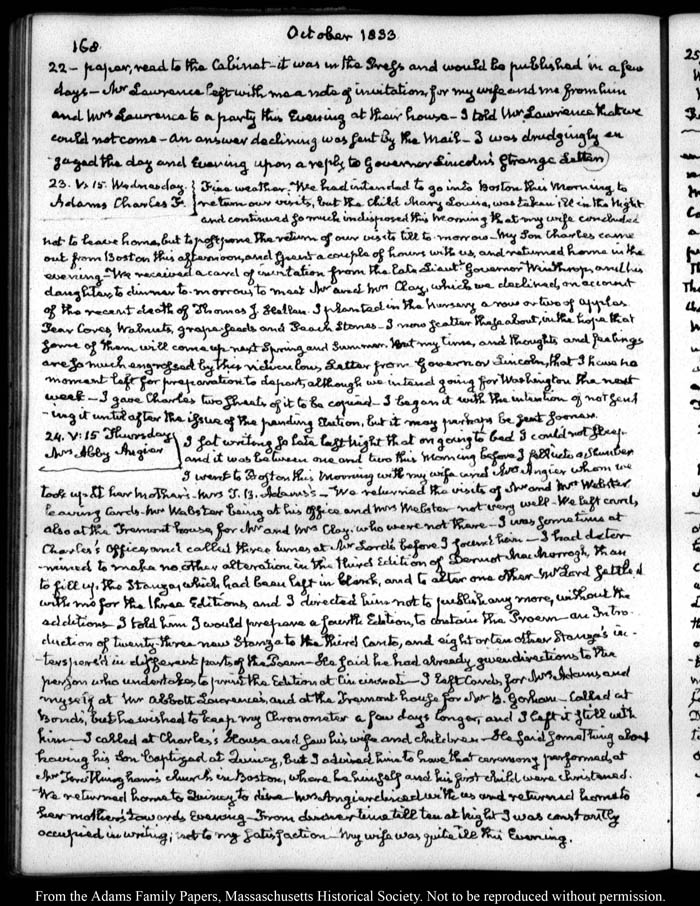 168.
October 1833.
22 – paper, read to the Cabinet – it was in the Press and would be published in a few
days – Mr Lawrence left with me a note of invitation, for my wife and me from him
and Mrs Lawrence to a party this Evening at their house – I told Mr Lawrence that we
could not come – An answer declining was sent by the Mail – I was drudgingly en
gaged the day and Evening upon a reply to Governor Lincoln's strange Letter
23. V:15. Wednesday.
Adams Charles F.
Fine weather. We had intended to go into Boston this Morning to
return our visits, but the Child Mary Louisa, was taken ill in the Night
and continued so much indisposed this Morning that my wife concluded
not to leave home, but to postpone the return of our visits till to-morrow – My Son Charles came
out from Boston this afternoon, and spent a couple of hours with us, and returned home in the
evening – We received a card of invitation from the late Lieutt Governor Winthrop, and his
daughter, to dinner to-morrow, to meet Mr and Mrs Clay, which we declined, on account
of the recent death of Thomas J. Hellen. I planted in the Nursery a row or two of apples
Pear Cores, Walnuts, grape-seeds and Peach Stones – I now scatter these about, in the hope that
some of them will come up next Spring and Summer. But my time, and thoughts, and feelings
are so much engrossed by this ridiculous Letter from Governor Lincoln, that I have no
moment left for preparation to depart, although we intend going for Washington the next
week – I gave Charles two sheets of it to be copied – I began it with the intention of not send
-ing it until after the issue of the pending Election, but it may perhaps be sent sooner.
24. V:15 Thursday
Mrs Abby Angier
I sat writing so late last Night that on going to bed I could not sleep
and it was between one and two this Morning before I fell into a slumber
I went to Boston this Morning with my wife and Mrs Angier whom we
took up at her mother's – Mrs T. B. Adams's – We returned the visits of Mr and Mrs Webster
leaving Cards – Mr Webster being at his office and Mrs Webster not very well – We left cards,
also at the Tremont house, for Mr and Mrs Clay, who were not there – I was sometime at
Charles's Office, and called three times at Mr Lord's before I found him – I had deter
mined to make no other alteration in the third Edition of Dermot Mac Morrogh, than
to fill up the Stanza, which had been left in blank, and to alter one other. Mr Lord settled
with me for the three Editions, and I directed him not to publish any more, without the
additions I told him I would prepare a fourth Edition, to contain the Proem – an Intro
duction of twenty-three new Stanza to the third Canto, and eight or ten other Stanza's in
-terspersed in different parts of the Poem – He said he had already given directions to the
person who undertakes to print the Edition at Cincinnati – I left Cards for Mrs Adams and
myself at Mr Abbott Lawrence's, and at the Tremont house for Mr B. Gorham – Called at
Bond's, but he wished to keep my Chronometer a few days longer, and I left it still with
him – I called at Charles's House and saw his wife and children – He said something about
having his Son baptized at Quincy, but I advised him to have that ceremony performed, at
Mr Frothingham's church in Boston, where he himself and his first child were christened.
We returned home to Quincy to dine – Mrs Angier dined with us and returned home to
her mother's towards Evening – From dinner time till ten at Night I was constantly
occupied in writing; not to my satisfaction – My wife was quite ill this Evening.
From the Adams Family Papers, Massachusetts Historical Society. Not to be reproduced without permission.